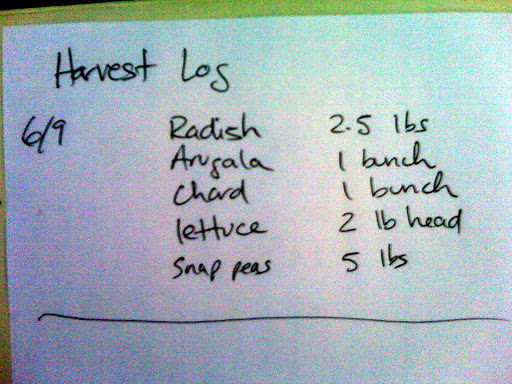 Harvest Log
6/9 Radish 2.5 lbs
Arugala 1 bunch
Chard 1 bunch
lettuce 2 lb head
Snap peas 5 lbs